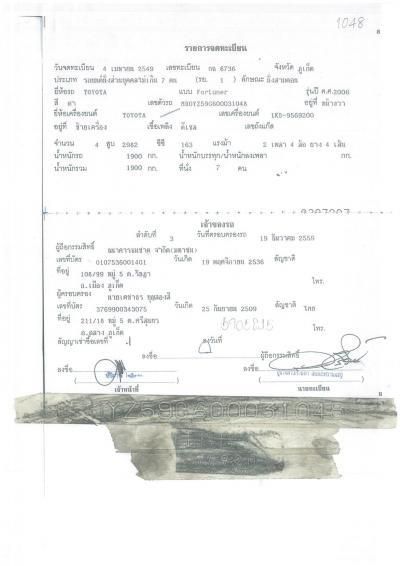 1048
8
รายการจดทะเบียน
วันจดทะเบียน 4 เมษายน 2549 เลขทะเบียน กฉ 6736 จังหวัด ภูเก็ต
ประเภท รถยนต์นั่งส่วนบุคคลไม่เกิน 7 คน (รย. 1) ลักษณะ นั่งสามตอน
ยี่ห้อรถ TOYOTA แบบ Fortuner รุ่นปี ค.ศ.2006
สี ดำ เลขตัวรถ อยู่ที่
ยี่ห้อเครื่องยนต์ TOYOTA เลขเครื่องยนต์ 1KD-9569200
อยู่ที่ ซ้ายเครื่อง เชื้อเพลิง ดีเซล เลขถังแก๊ส
จำนวน 4 สูบ 2982 ซีซี 163 แรงม้า 2 เพลา 4 ล้อ ยาง 4 เส้น
น้ำหนักรถ 1900 กก. น้ำหนักบรรทุก/น้ำหนักลงเพลา กก.
น้ำหนักรวม 1900 กก. ที่นั่ง 7 คน
เจ้าของรถ
ลำดับที่ 3 วันที่ครอบครองรถ 19 ธันวาคม 2559
ผู้ถือกรรมสิทธิ์ ธนาคารธนชาต จำกัด(มหาชน)
เลขที่บัตร 0107536001401 วันเกิด 19 พฤศจิกายน 2536 สัญชาติ
ที่อยู่ 108/99 หมู่ 5 ต.รัษฎา
อ.เมือง ภูเก็ต โทร.
ผู้ครอบครอง
เลขที่บัตร 3769900343075 วันเกิด 25 กันยายน 2509 สัญชาติ ไทย
ที่อยู่ 211/16 หมู่ 5 ต.ศรีสุนทร
อ.ถลาง ภูเก็ต โทร.
สัญญาเช่าซื้อเลขที่ ลงวันที่
ลงชื่อ ผู้ถือกรรมสิทธิ์
ลงชื่อ ลงชื่อ
เจ้าหน้าที่ นายทะเบียน
8